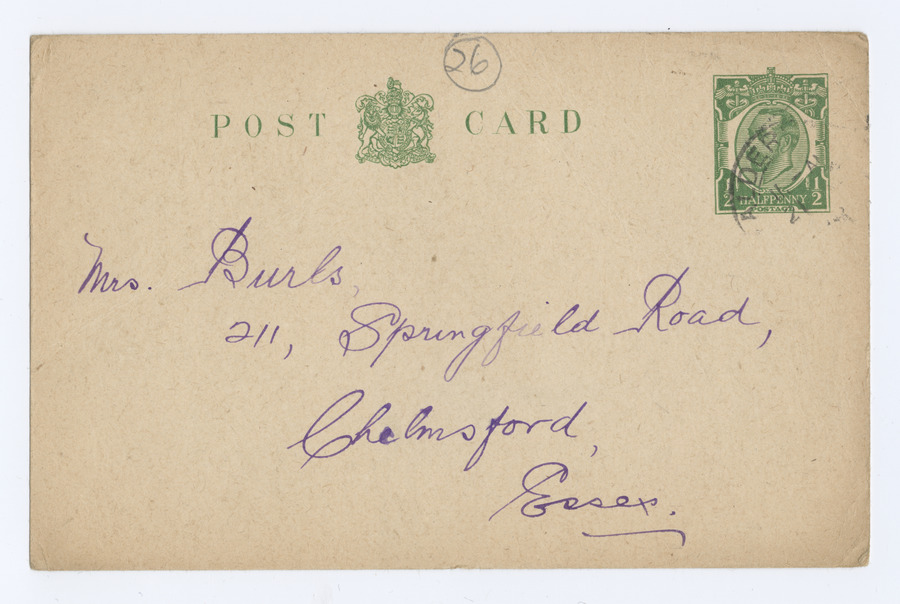 26
POST CARD
1/2 HALFPENNY 1/2
POSTAGE
Mrs. Burls,
211, Springfield Road,
Chelmsford,
Essex.